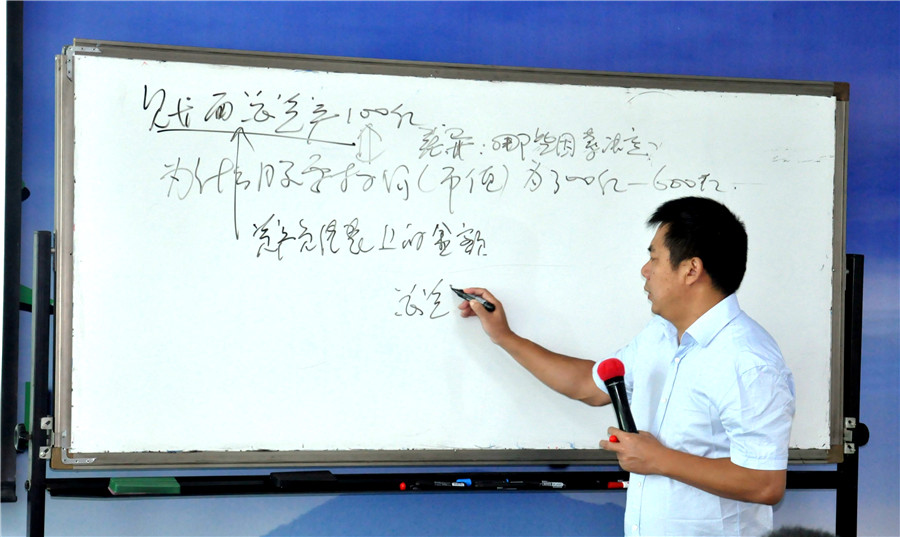 账面总资产100亿
差异:哪些因素决定?
为什么股票市值(市值)为300亿—600亿.
资产负债表上的金额
总资